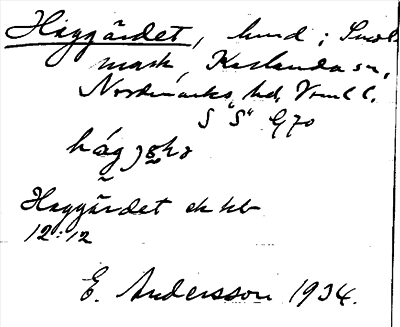 Haggärdet, hmd; Smol-
mark, Karlanda sn,
Nordmarks hd, Vrml l.
S "S" G70
Haggärdet ek kb
12:12
E. Andersson 1934.